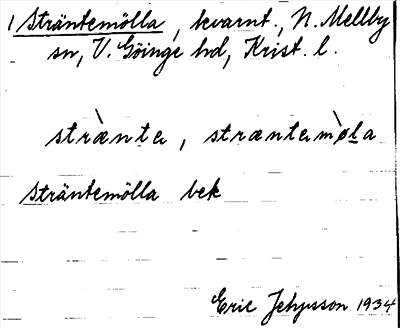 1 Sträntemölla, kvarnt., N. Mellby
sn, V. Göinge hd, Krist. l.
stràntɐ, strantɐmø̀la
Sträntemölla bek
Eric 1934